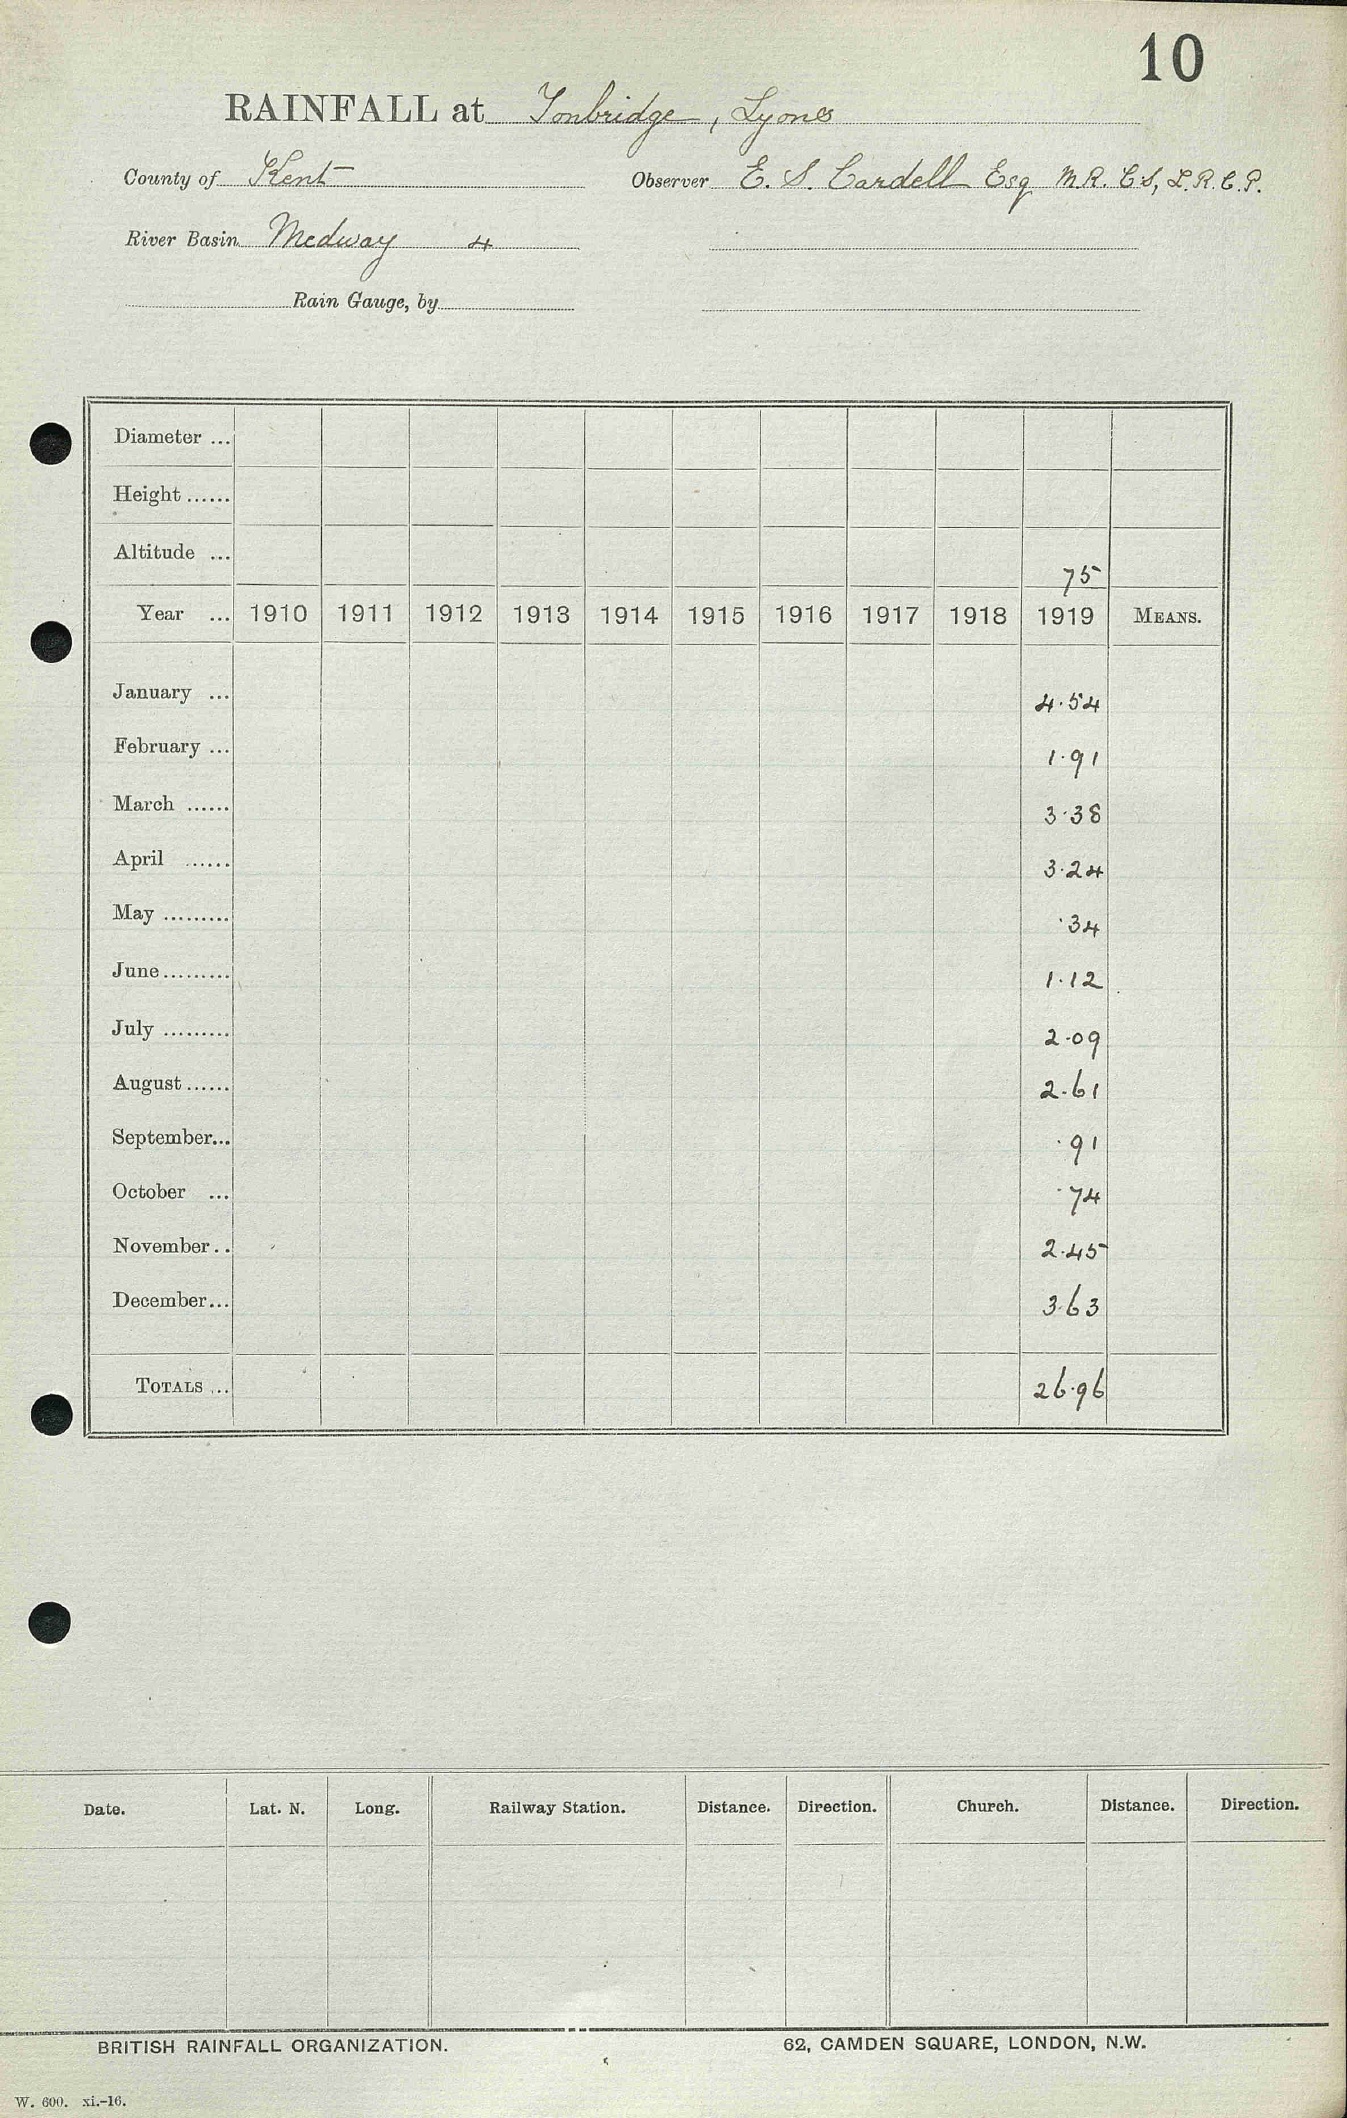 10
RAINFALL at Tonbridge, Lyons
County of Kent Observer E. S. Cardell Esq M.R.C.S, L.R.C.P.
River Basin Medway 4
Rain Gauge, by
Diameter ...
Height ......
Altitude ... 75
Year ... 1910 1911 1912 1913 1914 1915 1916 1917 1918 1919 MEANS.
January ... 4.54
February ... 1.91
March ...... 3.38
April ...... 3.24
May ......... .34
June ......... 1.12
July ......... 2.09
August ...... 2.61
September... .91
October ... .74
November.. 2.45
December... 3.63
TOTALS ... 26.96
Date. Lat. N. Long. Railway Station. Distance. Direction. Church. Distance. Direction.
BRITISH RAINFALL ORGANIZATION. 62, CAMDEN SQUARE, LONDON, N.W.
W. 600. xi.-16.